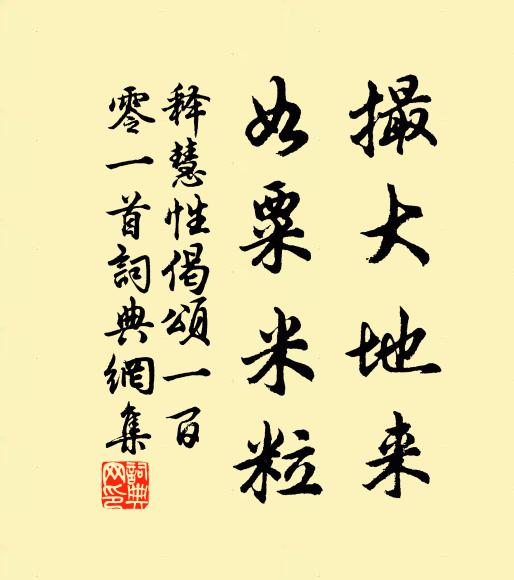 撮大地来
如粟米粒
释慧性偈颂一百
零一首詞典網集
詞典網印